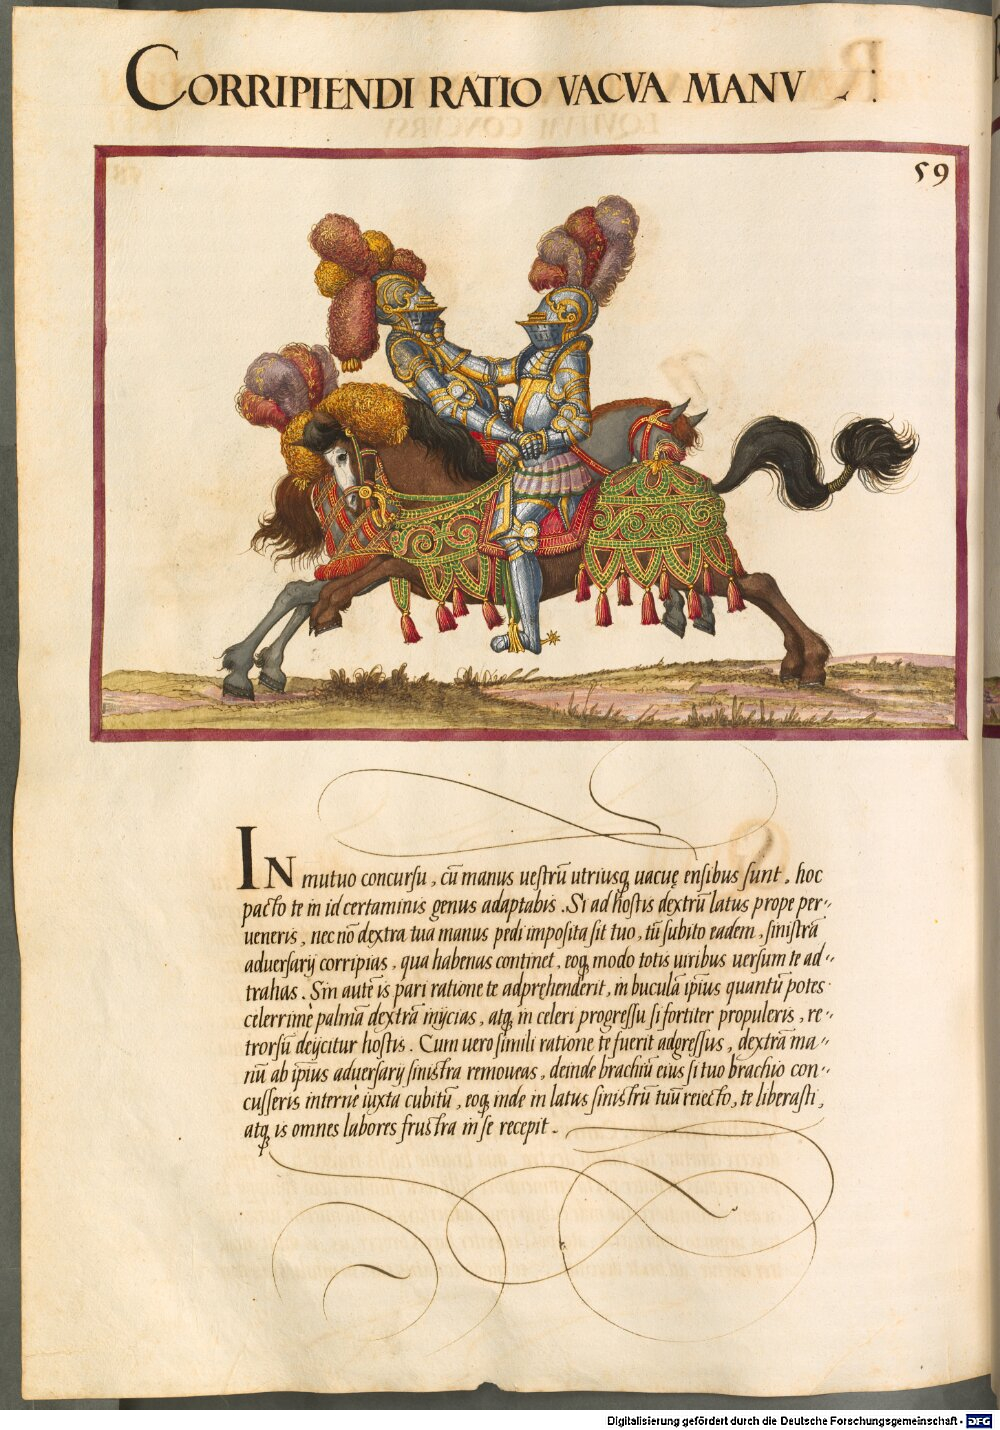 CORRIPIENDI RATIO VACVA MANV
59
IN mutuo concursu, cū manus uestrū utriusq; uacuę ensibus sunt, hoc
pacto te in id certaminis genus adaptabis. Si ad hostis dextrū latus prope per„
ueneris, nec nō dextra tua manus pedi imposita sit tuo, tū subito eadem, sinistrā
aduersarij corripias, qua habenas continet, eoq; modo totis uiribus uersum te ad„
trahas. Sin autē is pari ratione te adpręhenderit, in buculā ipīus quantū potes
celerrimè palmā dextrā inijcias, atq; in celeri progressu si fortiter propuleris, re„
trorsū deijcitur hostis. Cum uero simili ratione te fuerit adgressus, dextrā ma„
nū ab ipīus aduersarij sinistra remoueas, deinde brachiū eius si tuo brachio con„
cusseris internè iuxta cubitū, eoq; inde in latus sinistrū tuū reiecto, te liberasti,
atq; is omnes labores frustra in se recepit.
Digitalisierung gefördert durch die Deutsche Forschungsgemeinschaft - DFG